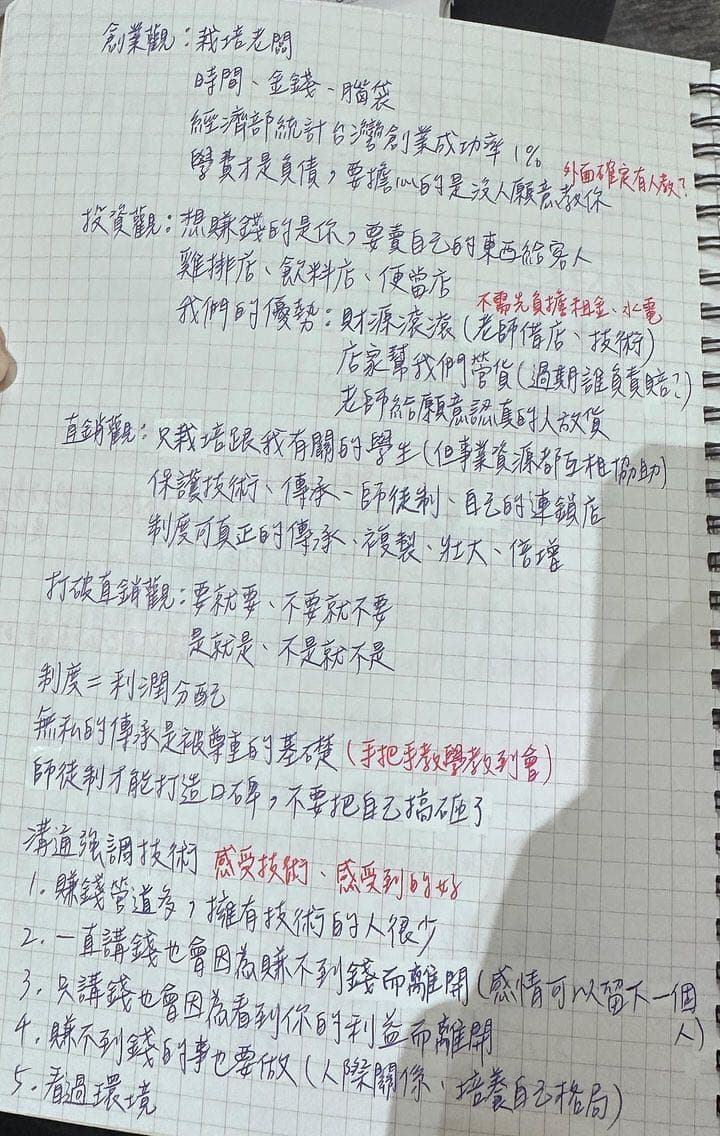 創業觀：栽培老闆
時間、金錢、腦袋
經濟部統計台灣創業成功率1%
外面確定有人教？
學費才是負債，要擔心的是沒人願意教你
投資觀：想賺錢的是你，要賣自己的東西給客人
雞排店、飲料店、便當店
不需先負擔租金、水電
我們的優勢：財源滾滾(老師借店、技術)
店家幫我們管貨(過期誰負責賠？)
老師給願意認真的人放貨
直銷觀：只栽培跟我有關的學生(但事業資源都互相協助)
保護技術、傳承、師徒制、自己的連鎖店
制度可真正的傳承、複製、壯大、倍增
打破直銷觀：要就要、不要就不要
是就是、不是就不是
制度=利潤分配
無私的傳承是被尊重的基礎(手把手教學教到會)
師徒制才能打造口碑，不要把自己搞砸了
溝通強調技術 感受技術、感受到的好
1. 賺錢管道多，擁有技術的人很少
2. 一直講錢也會因為賺不到錢而離開(感情可以留下一個人)
3. 只講錢也會因為看到你的利益而離開
4. 賺不到錢的事也要做(人際關係、培養自己格局)
5. 看過環境